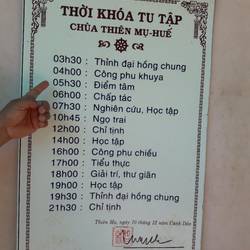 THỜI KHÓA TU TẬP
CHÙA THIÊN MỤ-HUẾ
03h30 : Thỉnh đại hồng chung
04h00 : Công phu khuya
05h30 : Điểm tâm
06h00 : Chấp tác
07h30 : Nghiên cứu, Học tập
10h45 : Ngọ trai
12h00 : Chỉ tịnh
14h00 : Học tập
16h00 : Công phu chiều
17h00 : Tiểu thực
18h00 : Giải trí, thư giãn
19h00 : Học tập
19h30 : Thỉnh đại hồng chung
21h30 : Chỉ tịnh
Thiên Mụ, ngày 10 tháng 12 năm Canh Dần